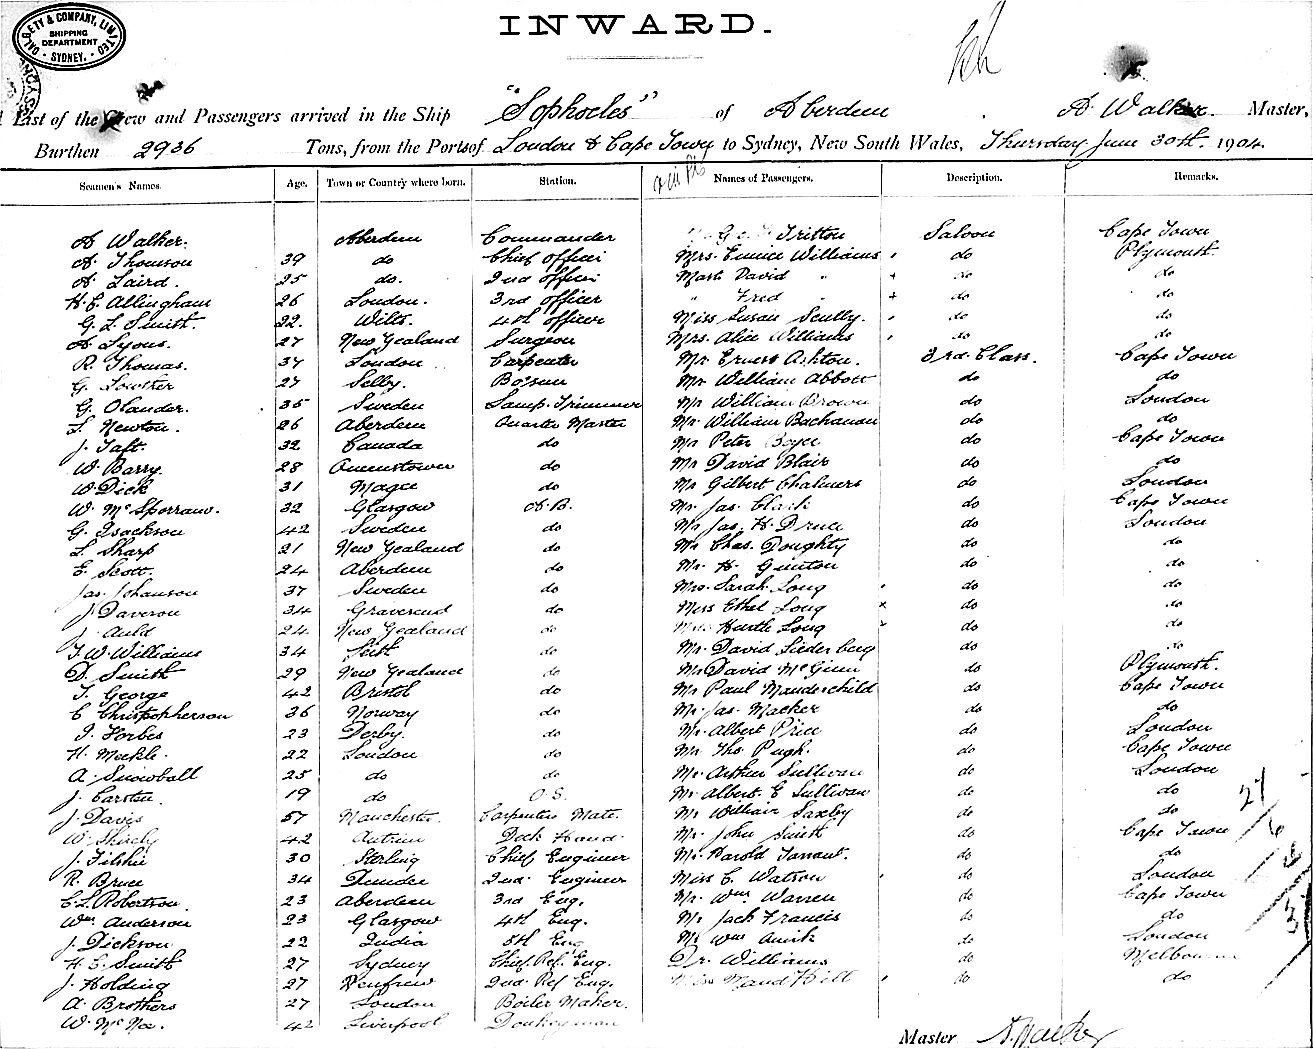 DALGETY & COMPANY, LIMITED
SHIPPING
DEPARTMENT
SYDNEY.
INWARD.
List of the Crew and Passengers arrived in the Ship "Sophocles" of Aberdeen A. Walker Master,
Burthen 2936 Tons, from the Ports of London & Cape Town to Sydney, New South Wales, Thursday June 30th. 1904.
Seamen's Names. Age. Town or Country where born. Station. Names of Passengers. Description. Remarks.
A Walker. Aberdeen Commander Tritton Saloon Cape Town
A Thomson 39 do Chief Officer Mrs. Eunice Williams do Plymouth
A Laird. 25 do. 2nd Officer Mast. David " do do
H. E. Allingham 26 London. 3rd Officer " Fred " do do
G. L. Smith. 22. Wilts. 4th Officer Miss Susan Scully. do do
A Lyons. 27 New Zealand Surgeon Mrs. Alice Williams do do
R. Thomas. 37 London Carpenter Mr Ernest Ashton. 3rd Class. Cape Town
G. Lowther 27 Selby. Bo'sun Mr William Abbott do do
G. Olander. 35 Sweden Lamp. Trimmer Mr William Brown do London
L. Newton. 26 Aberdeen Quarter Master Mr. William Buchanan do do
J. Taft. 32 Canada do Mr Peter do Cape Town
W. Barry. 28 Queenstown do Mr David Blair do do
W. Dick 31 Magee do Mr Gilbert Chalmers do London
W. McSporran. 32 Glasgow A.B. Mr. Jas. Clark do Cape Town
G. Isackson 42 Sweden do Mr. Jas. H. Druce do London
L. Sharp 21 New Zealand do Mr Chas. Doughty do do
E. Scott. 24 Aberdeen do Mr. H. Gunton do do
Jas. Johanson 37 Sweden do Mrs. Sarah Long do do
J. Daveron 34 Gravesend do Miss Ethel Long do do
J. Auld 24 New Zealand do Long do do
T. W. Williams 34 Leith do Mr. David Liederberg do do
D. Smith 29 New Zealand do Mr David McGinn do Plymouth.
T. George 42 Bristol do Mr Paul Manderchild do Cape Town
C Christopherson 36 Norway do Mr. Jas. Macker do do
J. Forbes 23 Derby. do Mr. Albert Price do London
H. Meekle. 22 London do Mr Tho. Pugh. do Cape Town
A. Snowball 25 do do Mr. Arthur Sullivan do London
J. Carsten. 19 do O.S. Mr. Albert. E Sullivan do do
J. Davis 57 Manchester. Carpenters Mate. Mr William Saxby do do
W. Shirely 42 Antrim Deck Hand. Mr. John Smith do Cape Town
J. Filshie 30 Sterling Chief Engineer Mr. Harold Tarrant. do do
R. Bruce 34 Dundee 2nd. Engineer Miss C. Watson do London
C. L. Robertson. 23 Aberdeen 3rd Eng. Mr. Wm. Warren do Cape Town
Wm. Anderson 23 Glasgow 4th Eng. Mr Jack Francis do do
J. Dickson 22 India 5th Eng Mr Wm Quirk do London
H. C. Smith 27 Sydney Chief. Ref. Eng. Dr. Williams do Melbourne
J. Holding 27 Renfrew 2nd. Ref Eng. Miss Maud Hill do do
A. Brothers 27 London Boiler Maker.
W. McNa. 42 Liverpool Donkeyman
Master A. Walker